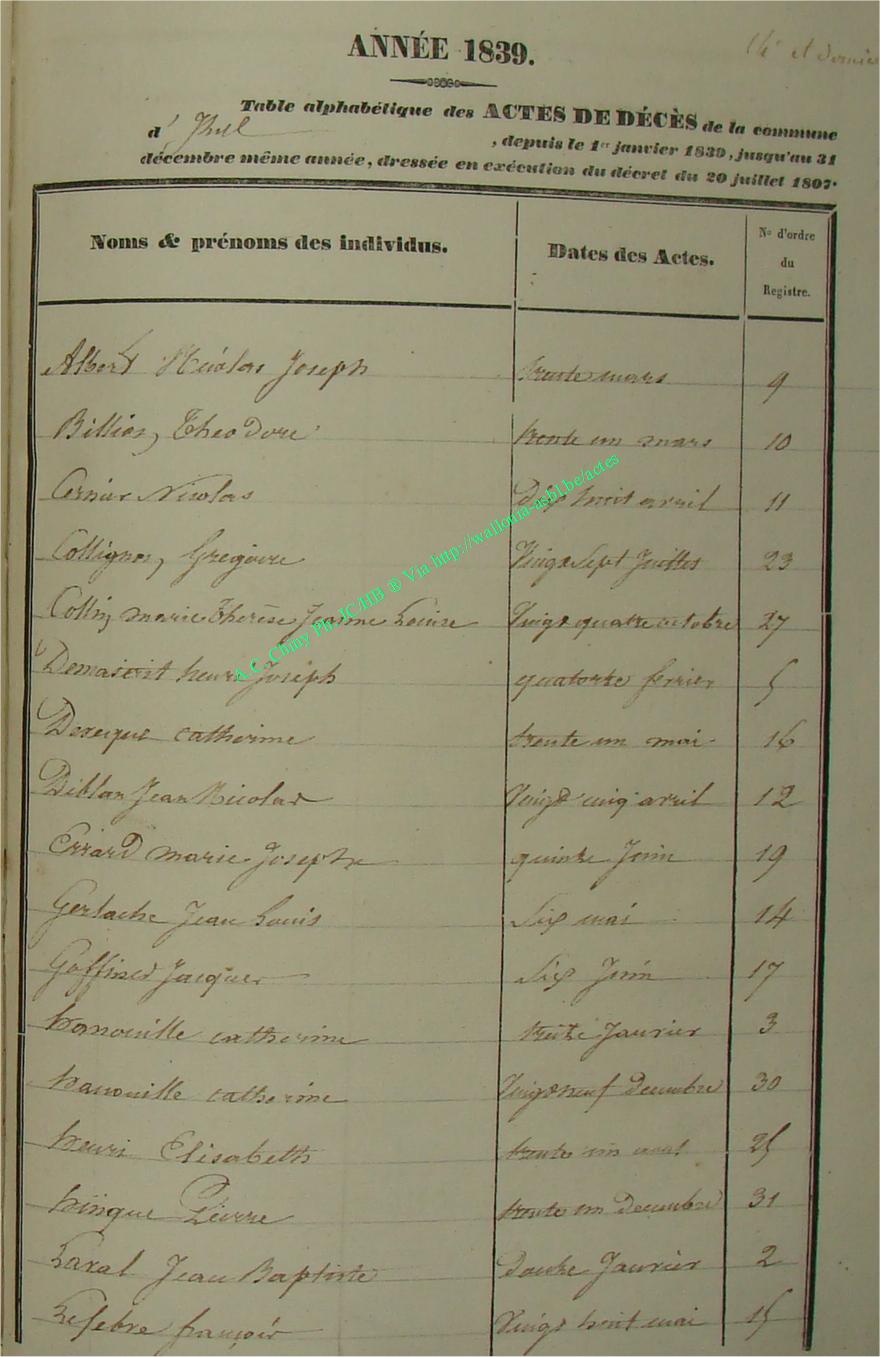 14e et dernier
ANNÉE 1839.
Table alphabétique des ACTES DE DÉCÈS de la commune
d'
, depuis le 1er janvier 1839, jusqu'au 31
décembre même année, dressée en exécution du décret du 20 juillet 1807.
Noms & prénoms des individus. Dates des Actes. No d'ordre du Registre.
Albert Nicolas Joseph trente mars 9
Billion, Theodore trente un mars 10
Cornur Nicolas Dix huit avril 11
Collignon, Gregoire Vingt Sept Juillet 23
Collin, marie Therèse Jeanne Louise Vingt quatre octobre 27
henri Joseph quatorze fevrier 5
catherine trente un mai 16
Jean Nicolas Vingt cinq avril 12
Errard marie Josephe quinze Juin 19
Gerlache Jean Louis Six mai 14
Goffinet Jacques Six Juin 17
hanouille catherine Janvier 3
hanouille catherine Vingt neuf Decembre 30
henri Elisabeth trente un aout 25
hinque Pierre trente un Decembre 31
Laval Jean Baptiste Douze Janvier 2
Lefebre françois Vingt huit mai 15
A.C. Chiny Ph JC/HB ® Via http://wallonia-asbl.be/actes